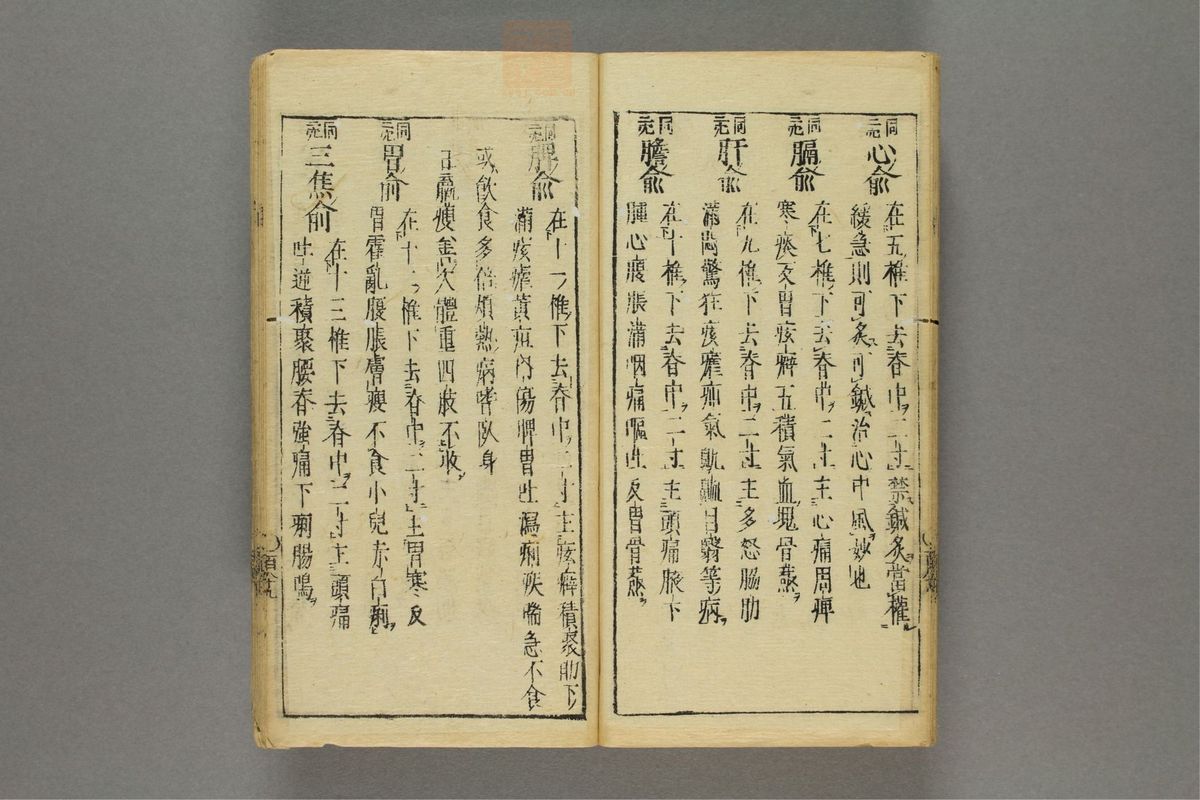 同 一
心俞 在五椎下去脊中二寸禁鍼灸當權
緩急則可灸可鍼治心中風妙也
膈俞 在七椎下去脊中二寸主心痛周痺
寒痰反胃痃癖五積氣血塊骨蒸
肝俞 在九椎下去脊中二寸主多怒脇肋
滿悶驚狂痃瘧疝氣鼽衄目翳等病
膽俞 在十椎下去脊中二寸主頭痛腋下
腫心腹脹滿咽痛嘔吐反胃骨蒸
脾俞 在十一椎下去脊中二寸主痃癖積聚肋下
滿痎瘧黃疸內傷脾胃吐瀉痢疾喘急不食
或飲食多倍煩熱病嗜臥身
羸瘦 體重四肢不收
胃俞 在十二椎下去脊中二寸主胃寒反
胃霍亂腹脹膚瘦不食小兒赤白痢
三焦俞 在十三椎下去脊中二寸主頭痛
吐逆積聚腰脊強痛下痢腸鳴